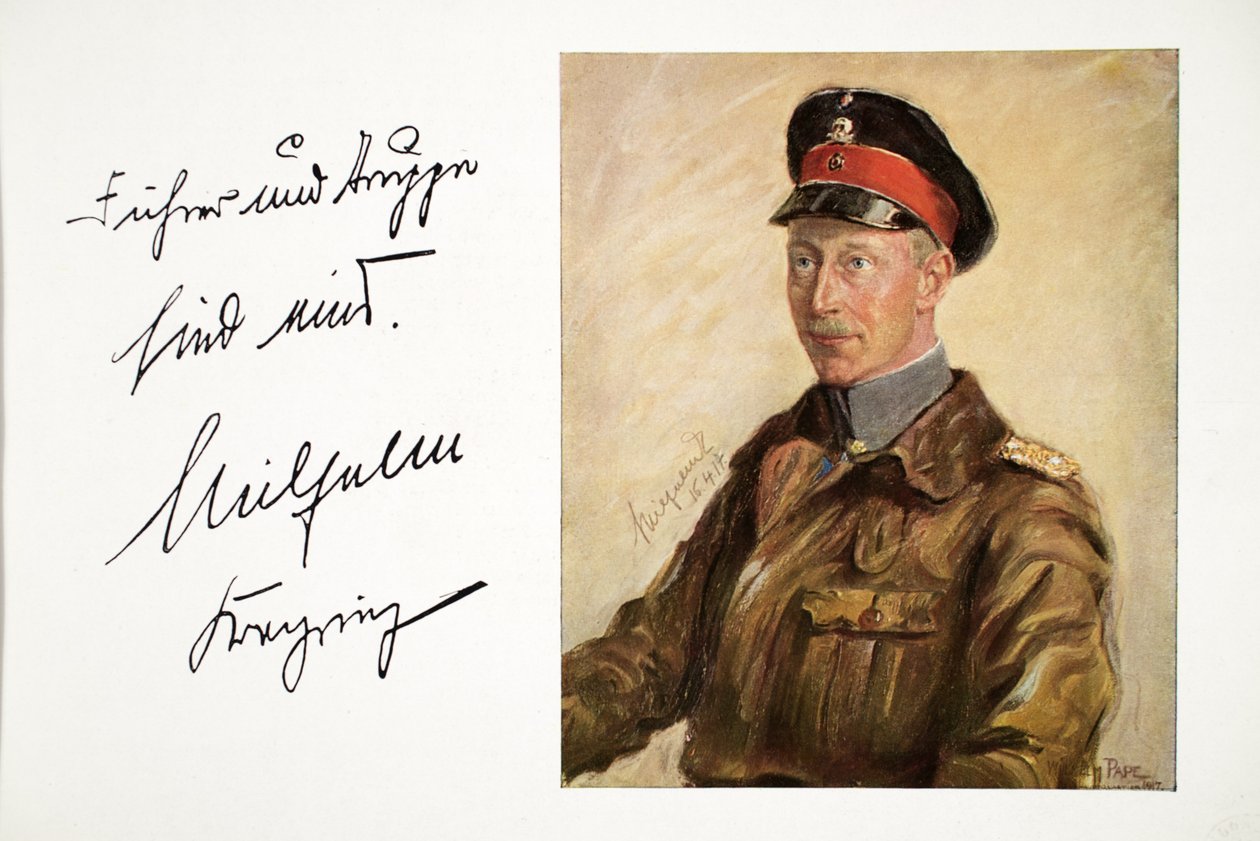 Führer und Truppe
sind eins.
Wilhelm
Kronprinz
16.4.17.
PAPE
1917.